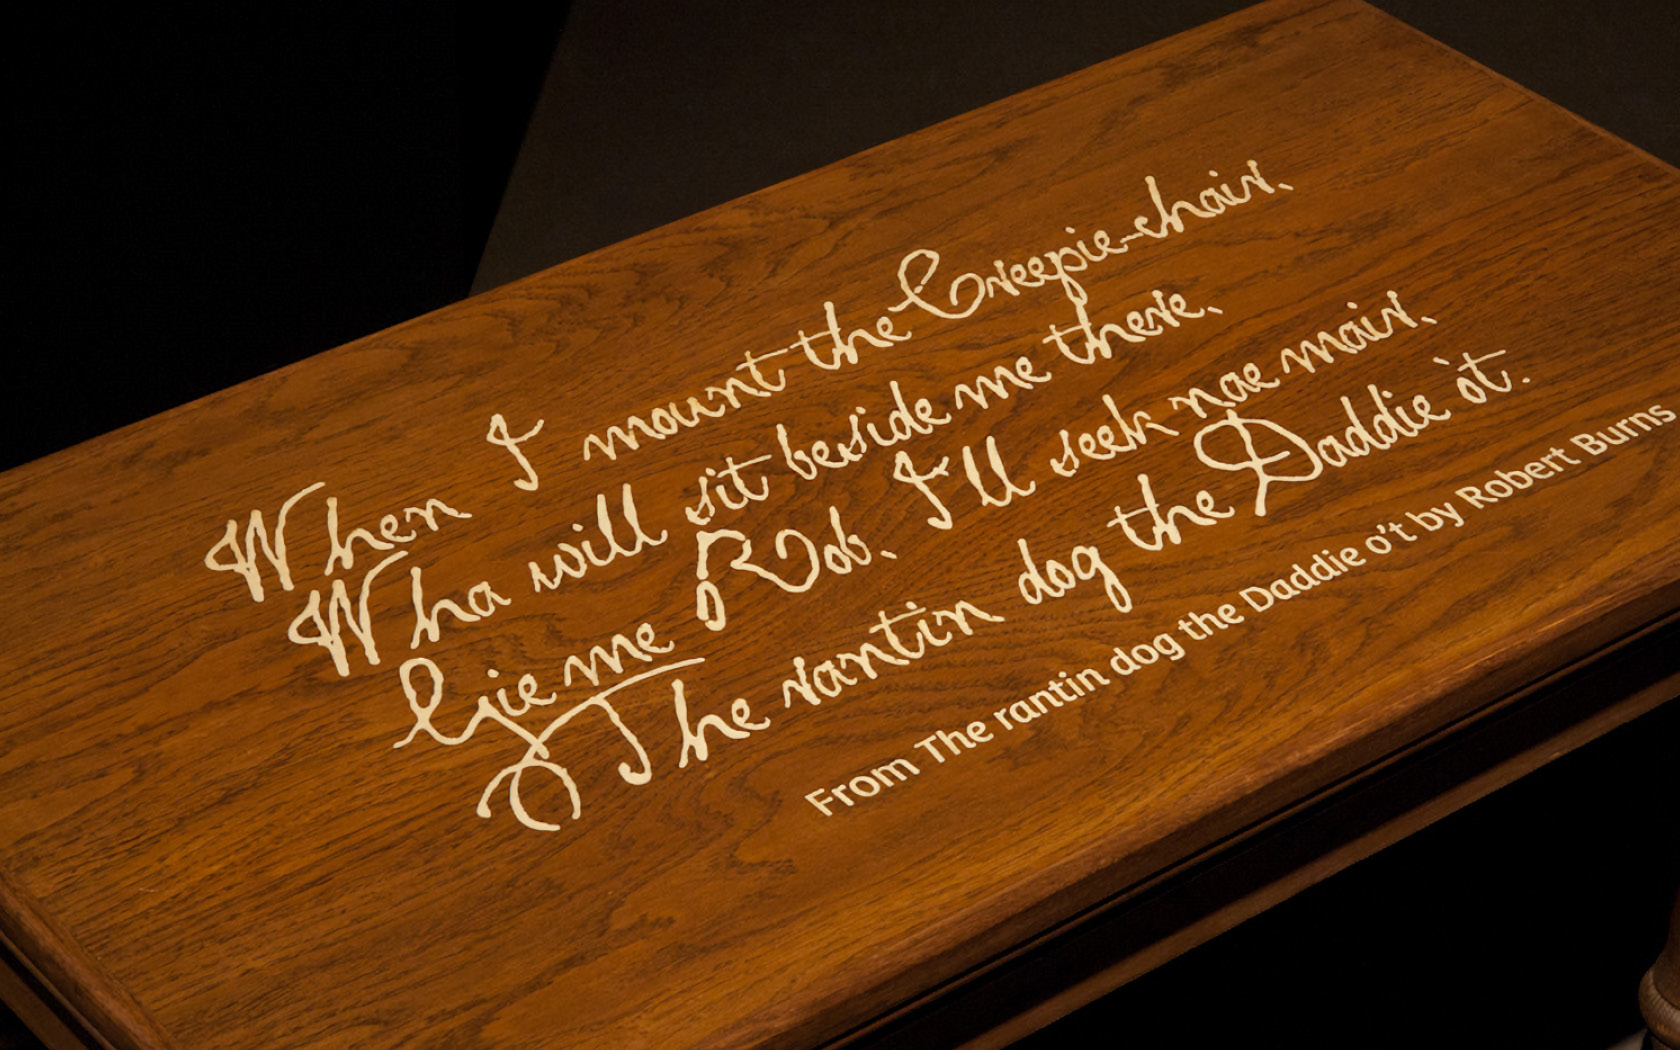 When I mount the Creepie-chair,
Wha will sit beside me there,
Gie me Rob, I'll seek nae mair,
The rantin dog the Daddie o't.
From The rantin dog the Daddie o't by Robert Burns